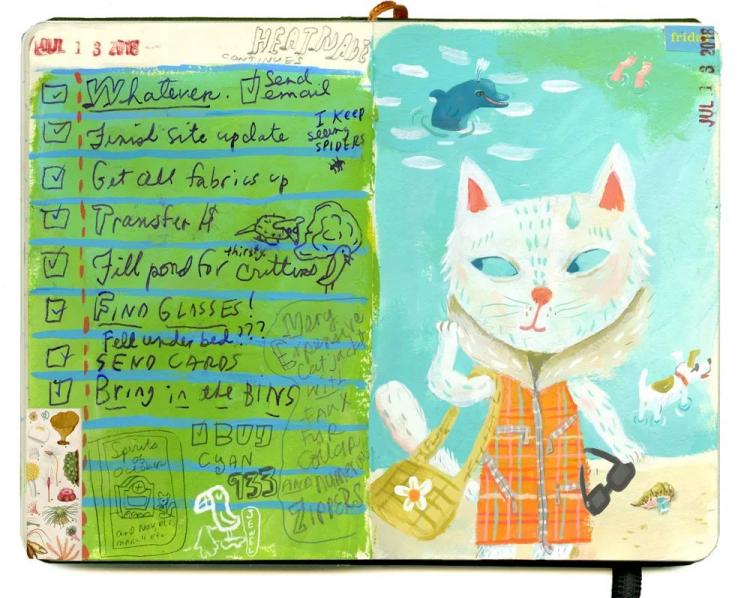 JUL 1 3 2018
HEATWAVE
CONTINUES
Whatever.
Send email
Finish site update
I keep
seeing
SPIDERS
Get all fabrics up
Transfer
Fill pond for thirsty critters
FIND GLASSES!
Fell under bed???
SEND CARDS
Bring in the BINS
BUY
CYAN
933
Spirits
Very
Expensive
Cat jacket
with
Faux
Fur
Collar
AND numerous
ZIPPERS
friday
JUL 1 3 2018